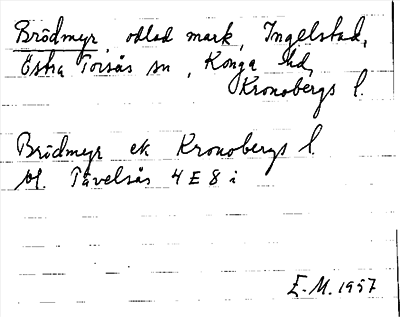 Brödmyr, odlad mark, Ingelstad,
Östra Torsås sn, Konga hd,
Kronobergs l.
Brödmyr ek Kronobergs l.
bl. Tävelsås 4 E 8 i
E.M. 1957